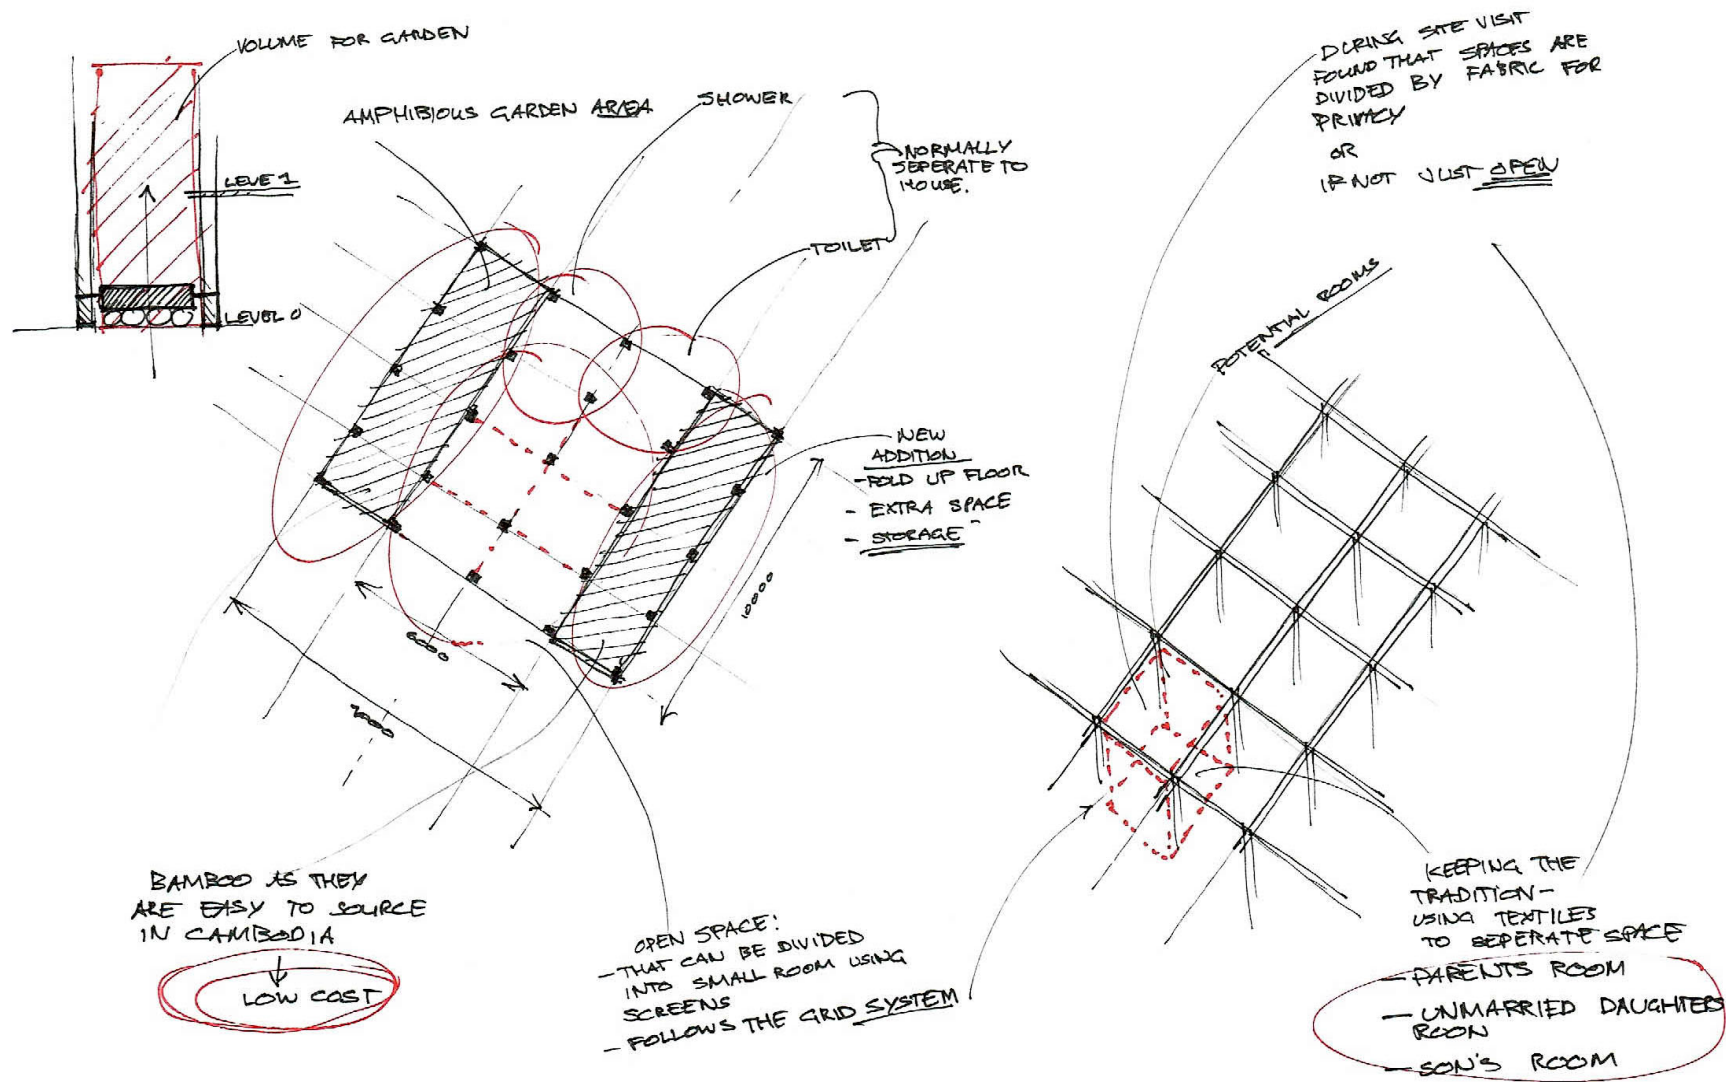 VOLUME FOR GARDEN
LEVE 1
LEVEL 0
AMPHIBIOUS GARDEN AREA
SHOWER
NORMALLY
SEPERATE TO
HOUSE.
TOILET
NEW
ADDITION
- FOLD UP FLOOR
- EXTRA SPACE
- STORAGE
6000
10000
BAMBOO AS THEY
ARE EASY TO SOURCE
IN CAMBODIA
LOW COST
OPEN SPACE:
- THAT CAN BE DIVIDED
INTO SMALL ROOM USING
SCREENS
- FOLLOWS THE GRID SYSTEM
DURING SITE VISIT
FOUND THAT SPACES ARE
DIVIDED BY FABRIC FOR
PRIVACY
OR
IF NOT JUST OPEN
POTENTIAL ROOMS
KEEPING THE
TRADITION -
USING TEXTILES
TO SEPERATE SPACE
- PARENTS ROOM
- UNMARRIED DAUGHTERS
ROOM
- SON'S ROOM